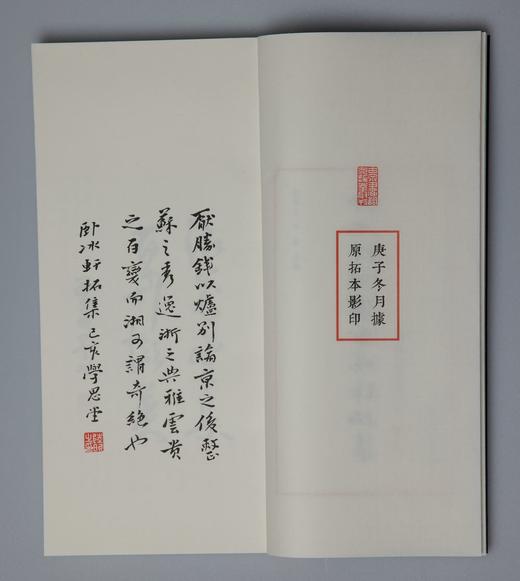 庚子冬月據
原拓本影印
厭勝錢以爐別論京之俊整
蘇之秀逸浙之典雅雲貴
之百變而湘可謂奇絕也
臥冰軒拓集己亥學思堂